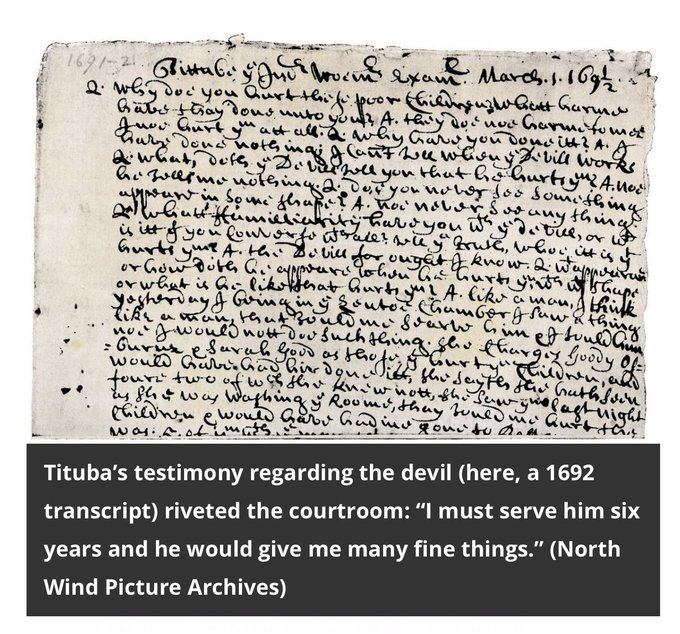 1691-2
Tittube yᵉ Indⁿ Woemⁿˢ Examⁿ. March. 1. 169½
Q. why doe you hurt these poor Children? whatt harme
have thay done unto you? A. they doe noe harme to mee
I noe hurt yᵐ att all. Q. why have you done itt? A. I
have done nothing; I Can't tell when yᵉ Devill works
Q. what doth yᵉ Devill tell you that he hurts yᵐ? A. noe
he tells me nothing. Q. doe you never See Something
appeare in Some shape? A. noe never See any thing.
Q. whatt familiarity have you wᵗʰ yᵉ devill, or wᵗ
is itt if you Converse wᵗʰ all? tell yᵉ truth, whoe itt is yᵗ
hurts yᵐ? A. the Devill for ought I know. Q. wᵗ appearanc
or how doth he appeare when he hurts yᵐ, with wᵗ shape
or what is he like that hurts yᵐ. A. like a man I think
yesterday I being in yᵉ Lentoe Chamber I saw a thing
like a man, that tould me Searve him & I tould him
noe I would nott doe Such thing. she Charges Goody Os-
=burne & Sarah Good as those yᵗ hurt yᵉ Children, and
would have had hir done itt, she sayth she hath Seen
foure two of wᶜʰ she Knew nott, she saw yᵐ last night
as she was washing yᵉ Roome, thay tould me hurt the
Children & would have had me gone to
was. 5. of
Tituba's testimony regarding the devil (here, a 1692
transcript) riveted the courtroom: “I must serve him six
years and he would give me many fine things.” (North
Wind Picture Archives)